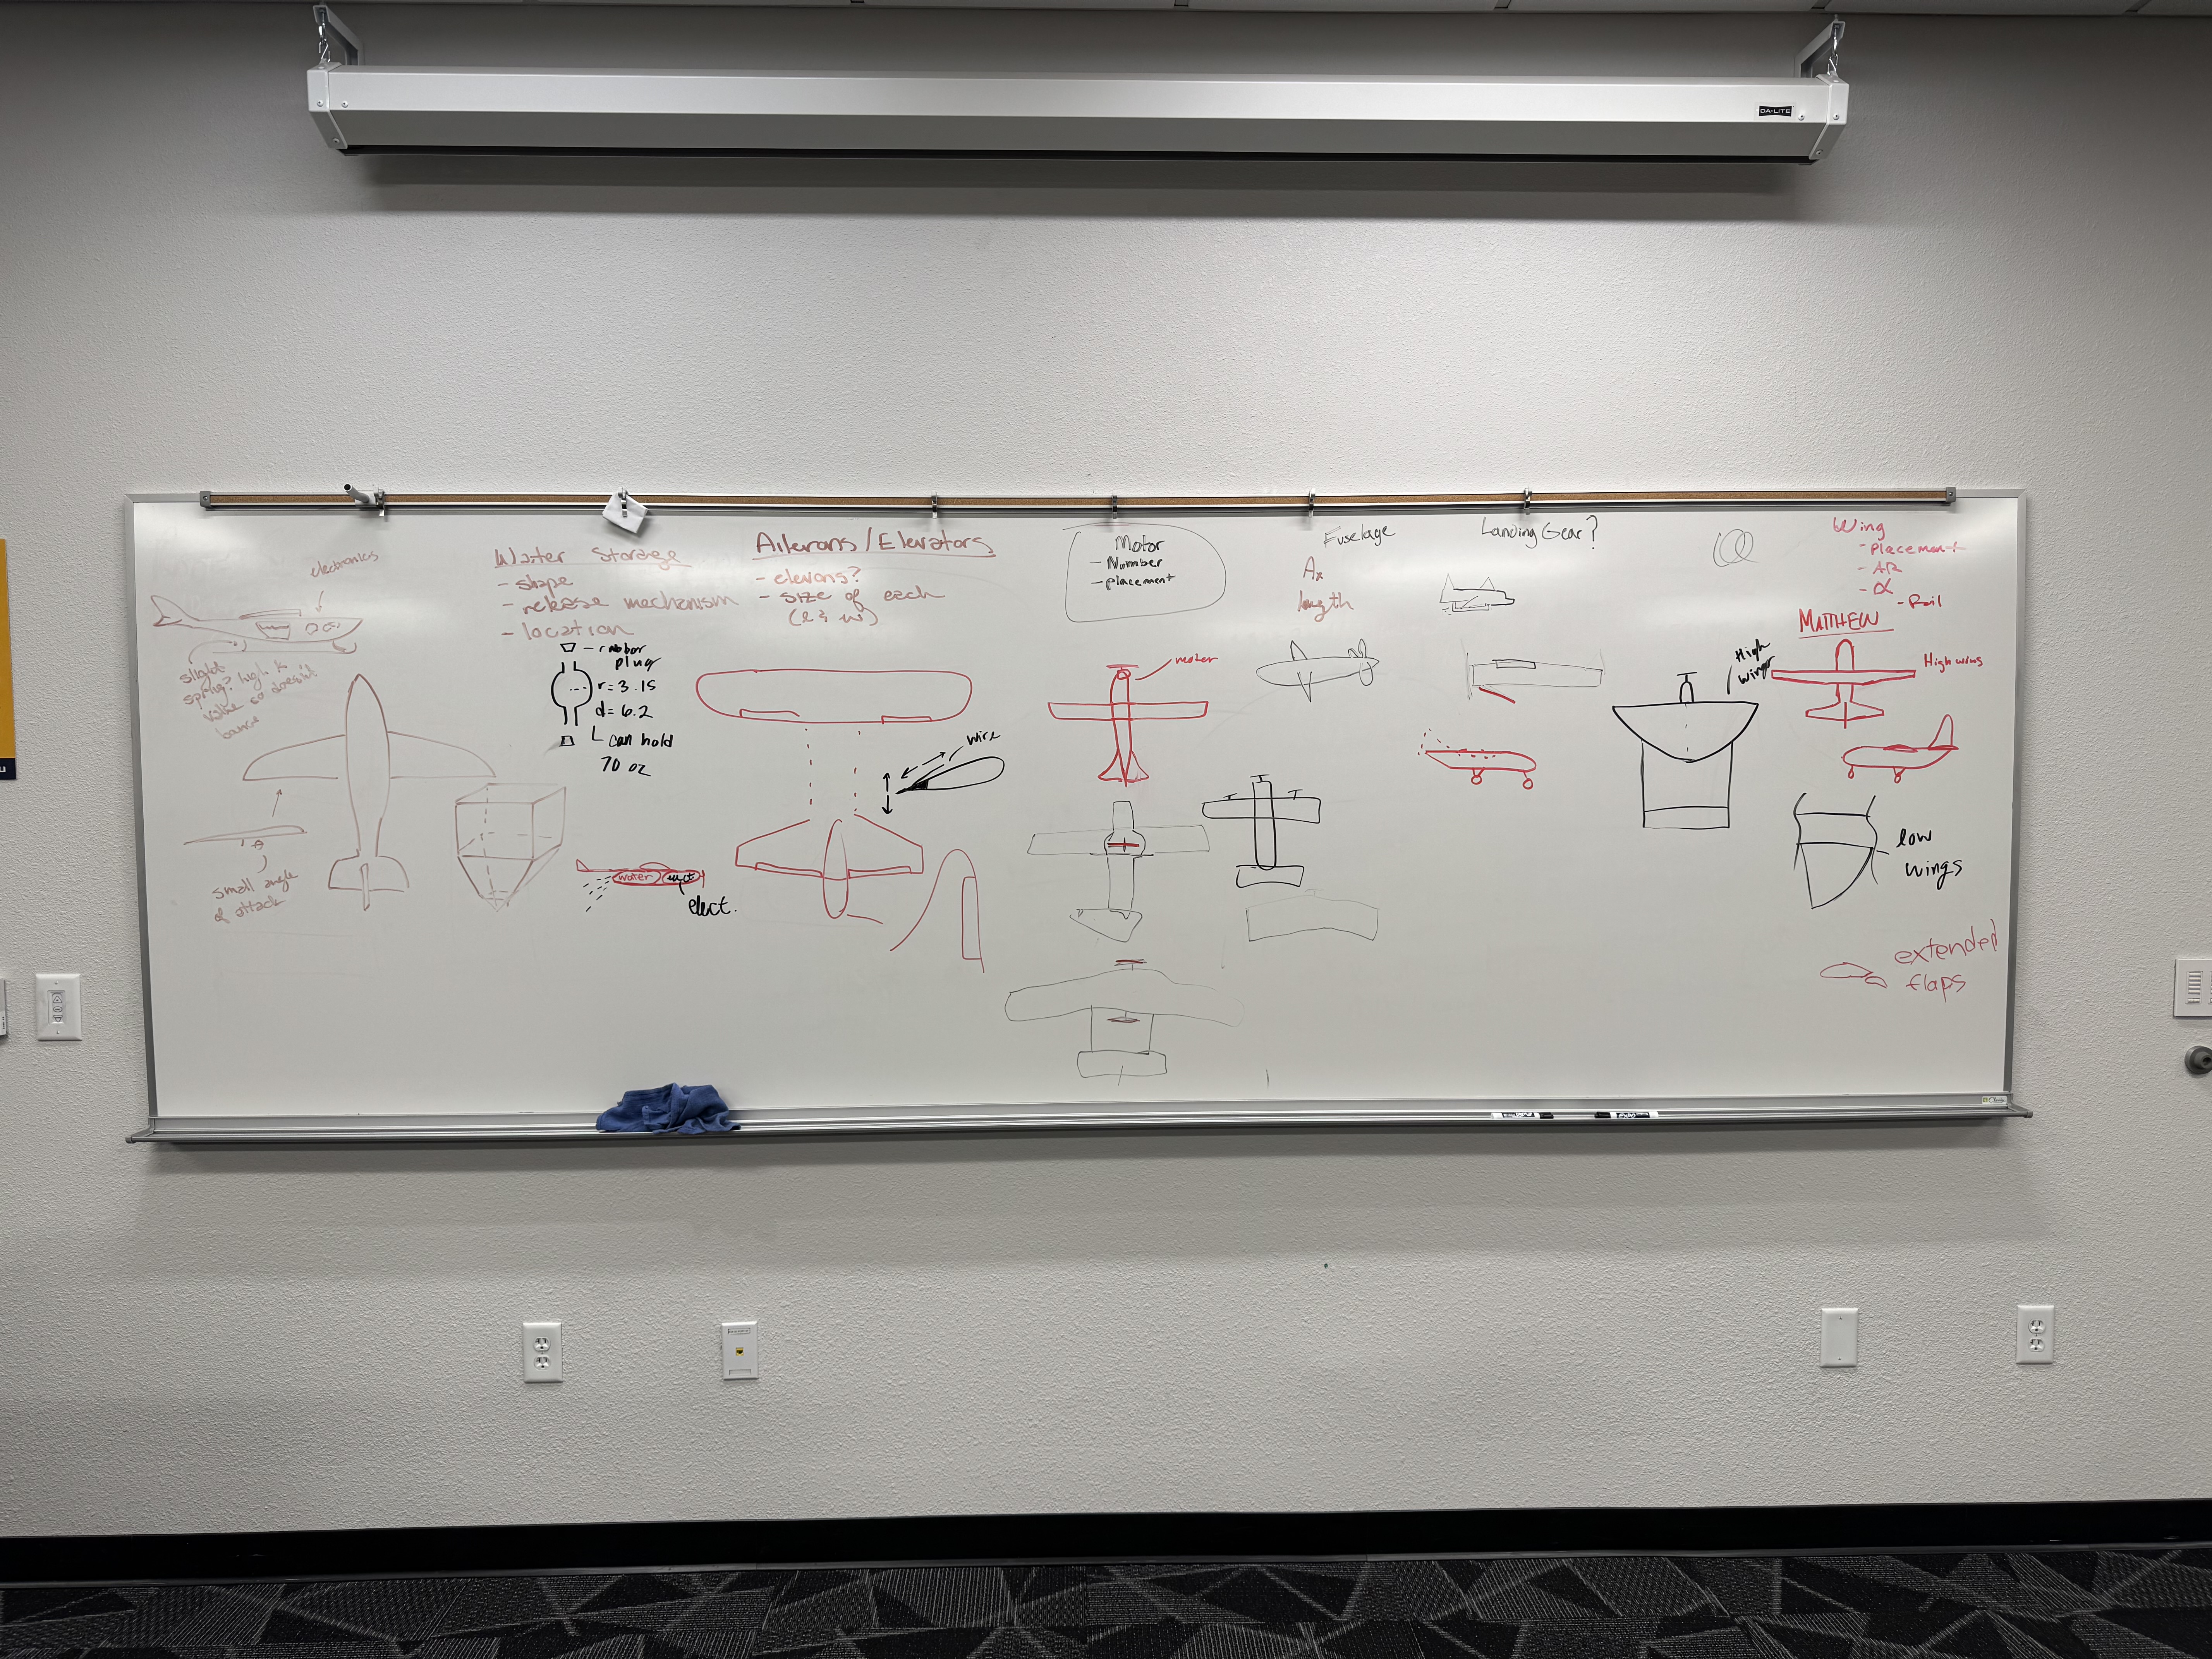 DA-LITE
electronics
slight
spring? high k
value so doesn't
bounce
small angle
of attack
Water Storage
- shape
- release mechanism
- location
- rubber
plug
r=3.15
d=6.2
can hold
70 oz
water
elect.
Ailerons/Elevators
- elevons?
- size of each
(l & w)
wire
Motor
- Number
- placement
motor
Fuselage
Ax
length
Landing Gear?
High
wings
Wing
- Placement
- AR
- α
- Foil
MATTHEW
High wing
low
wings
extended
flaps
u